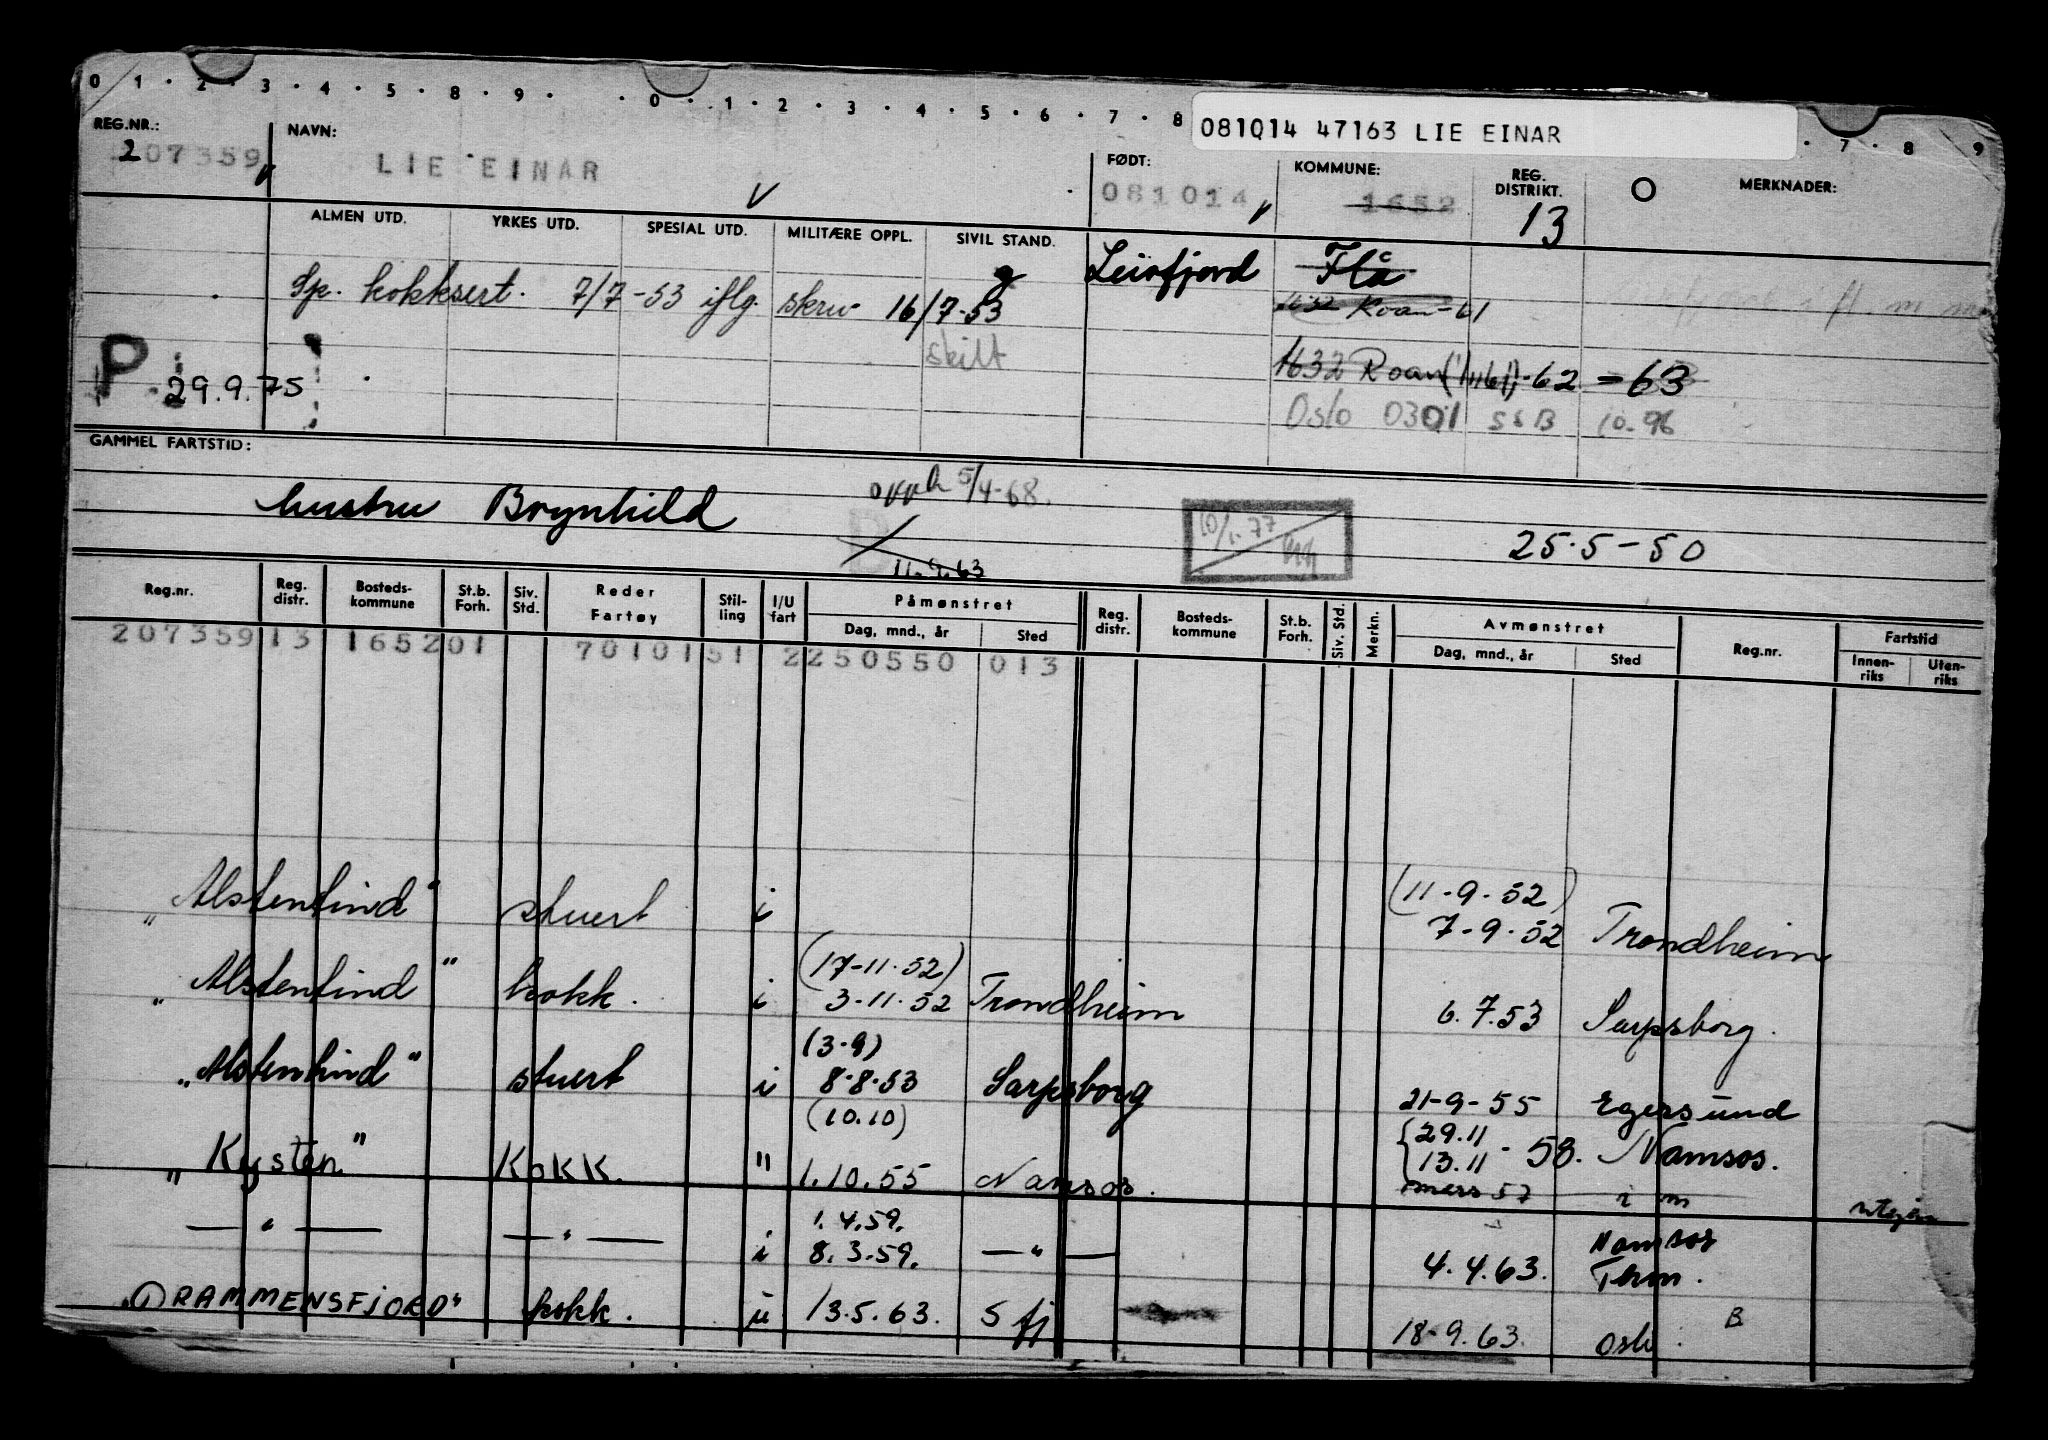 0 1 · 2 · 3 · 4 · 5 · 8 · 9 · · 0 · 1 · 2 · 3 · 4 · 5 · 6 · 7 · 8 · 7 · 8 9
081014 47163 LIE EINAR
REG.NR.: NAVN: FØDT: KOMMUNE: REG. DISTRIKT. O MERKNADER:
207359 LIE EINAR 081014 1652 13
ALMEN UTD. YRKES UTD. SPESIAL UTD. MILITÆRE OPPL. SIVIL STAND.
g Leirfjord Flå
Sp. kokksert. 7/7-53 iflg. skriv 16/7-53 1632 Roan-61
skilt 1632 Roan (1/1161) -62 = 63
P 29.9.75 Oslo 0301 SSB 10-96
GAMMEL FARTSTID:
hustru Brynhild opph 5/4-68.
10/1-77 25.5-50
11.9.63
Reg.nr. Reg. distr. Bosteds-kommune St.b. Forh. Siv. Std. Reder Fartøy Stil-ling I/U fart Påmønstret Dag, mnd., år Sted Reg. distr. Bosteds-kommune St.b. Forh. Siv. Std. Merkn. Avmønstret Dag, mnd., år Sted Reg.nr. Fartstid Innen-riks Uten-riks
207359 13 1652 01 7010151 2250550 013
(11-9-52)
"Alstentind" stuert i 7-9-52 Trondheim
(17-11-52)
"Alstentind" kokk. i 3-11-52 Trondheim 6.7.53 Sarpsborg.
(3-9)
"Alstentind" stuert i 8-8-53 Sarpsborg 21-9-55 Egersund
(10.10) {29.11
"Kysten" KOKK. " 1.10.55 Namsos. 13.11-58. Namsos.
mers 57 i m
1.4.59.
— " — — " — i 8.3.59. — " — 4.4.63. Namsos
"DRAMMENSFJORD" kokk. u 13.5.63. S fj 18-9.63. Oslo. B